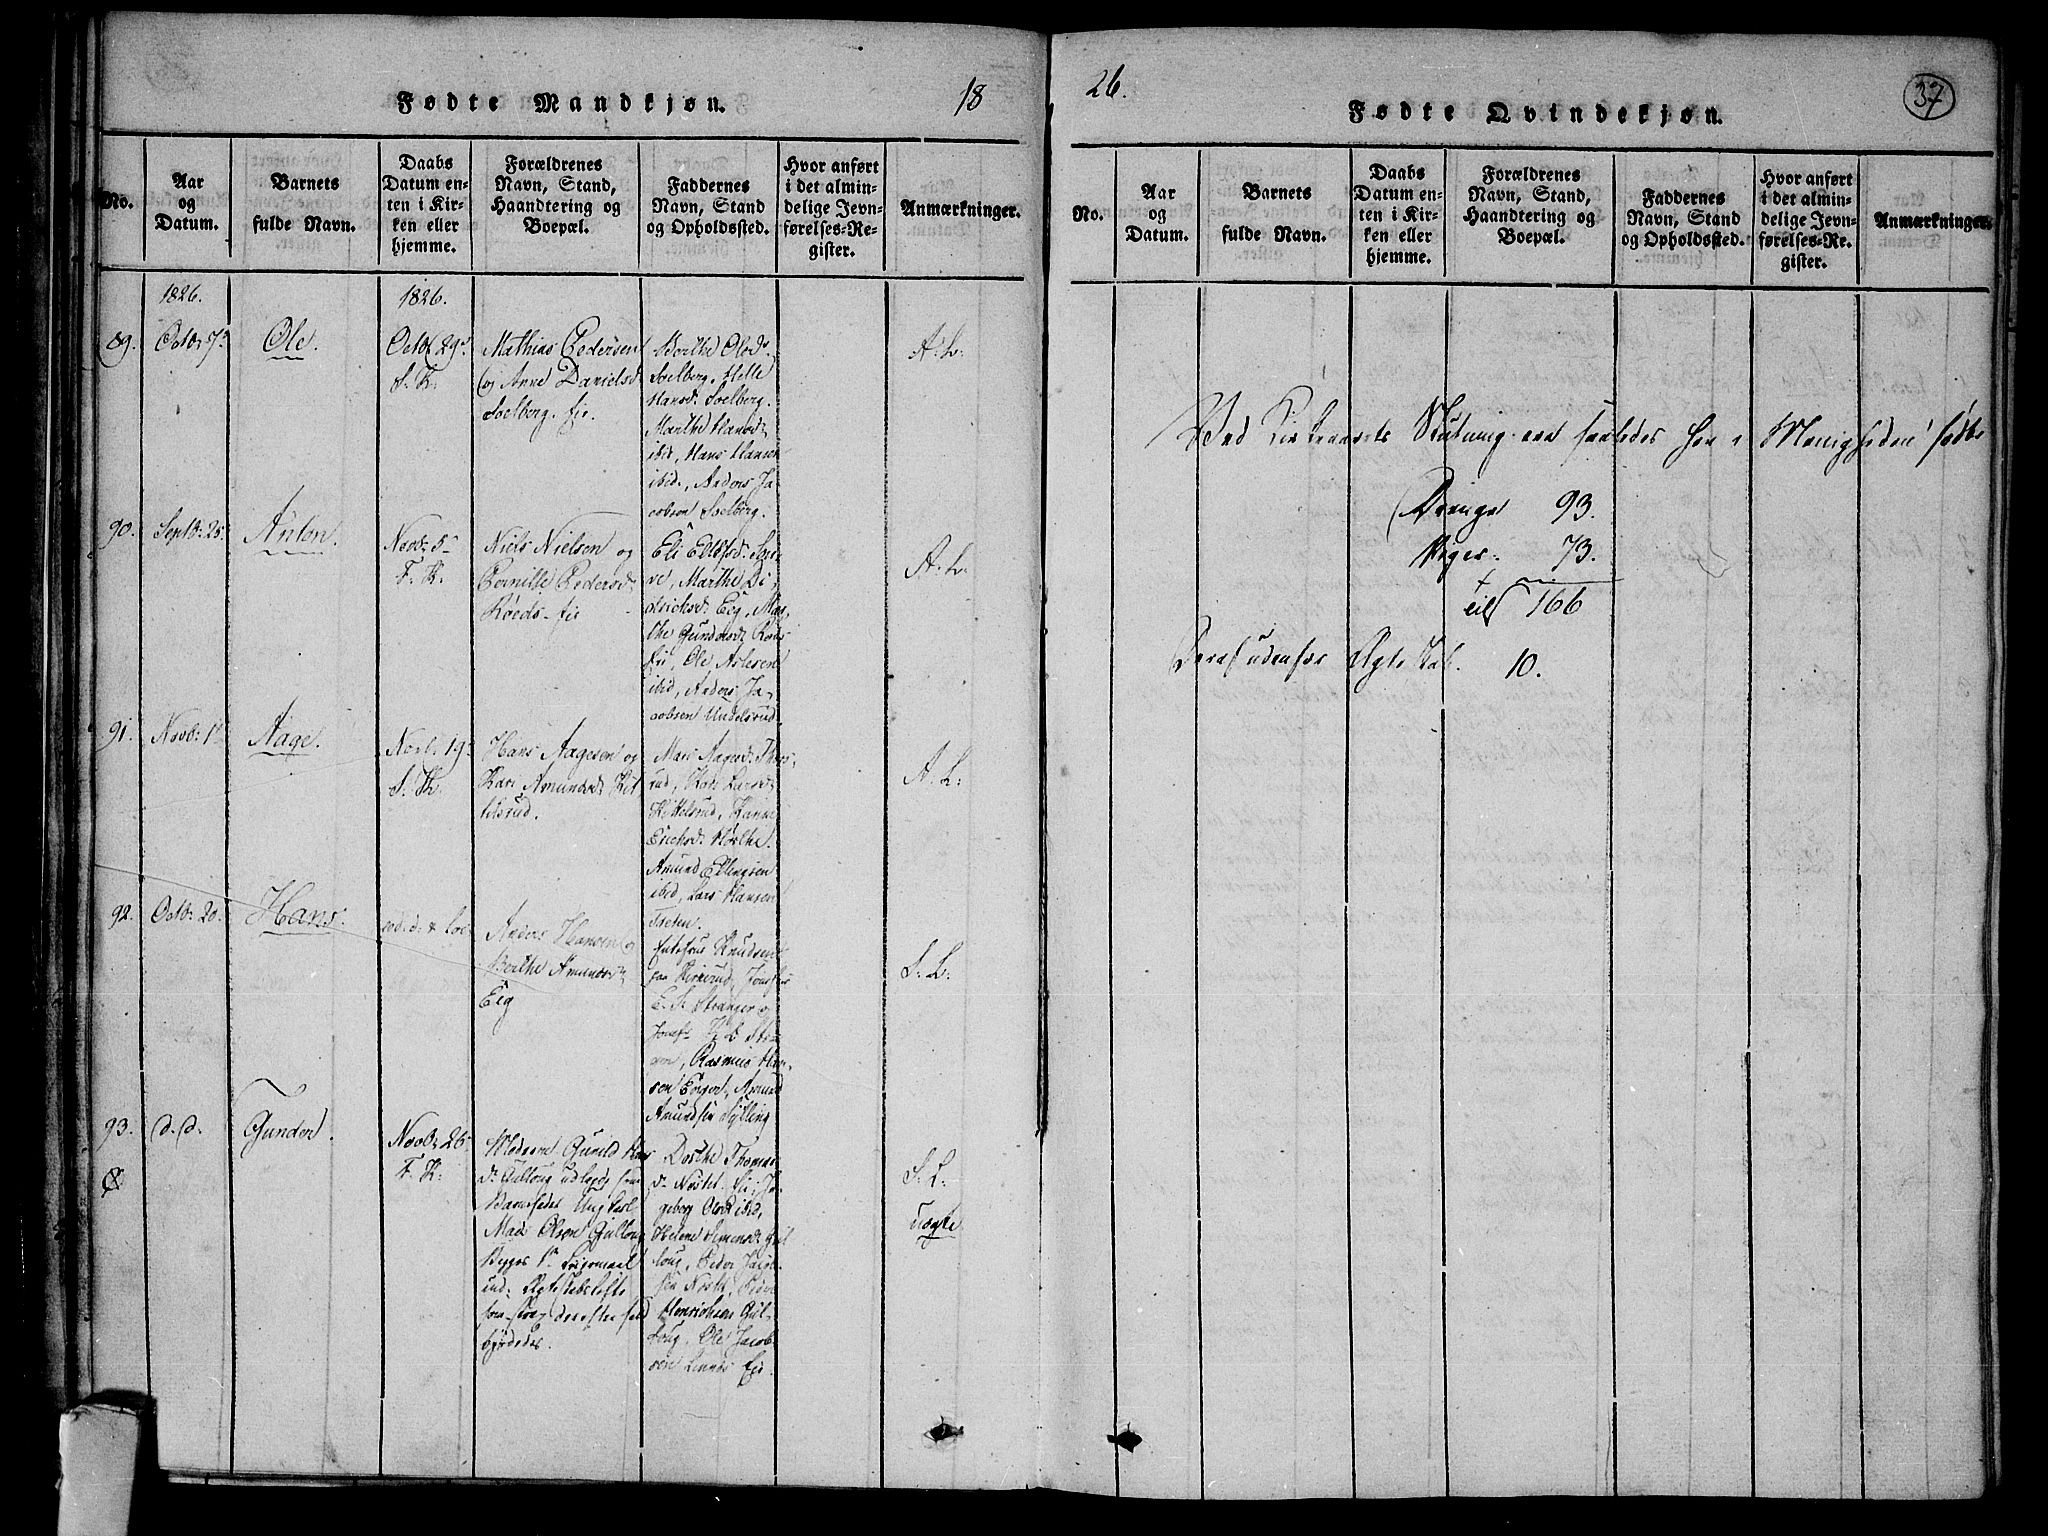 Fødte Mandkjøn.
18
No.
Aar
og
Datum.
Barnets
fulde Navn.
Daabs
Datum en-
ten i Kir-
ken eller
hjemme.
Forældrenes
Navn, Stand,
Haandtering og
Boepæl.
Faddernes
Navn, Stand
og Opholdssted.
Hvor anført
i det almin-
delige Jevn-
førelses-Re-
gister.
Anmærkninger.
1826.
1826.
89.
Octb: 7de
Ole.
Octb 29de
S. K.
Mathias Pedersen
og Anne Danielsd
Soelberg. eie.
Berthe Olesd.
Soelberg. Helle
Hansd: Soelberg.
Marthe Hansd:
ibid, Hans Hansen
ibid., Anders Ja-
cobsen Soelberg.
A: L:
90.
Septb: 25.
Anton.
Novb: 5te
F. K.
Niels Nielsen og
Pernille Pedersd:
Røeds- eie
Eli
Marthe Di-
drichsd: Eeg, Mar-
the Gundersd: Røds
Eie, Ole Aslesen
ibid, Anders Ja-
cobsen Undelsrud.
A: L:
91.
Novb: 1ste
Aage.
Novb: 19de
S. K.
Hans Aagesen og
Kari Amundsd: Kit-
telsrud.
Mari Aagesd:
rud, Kari Larsd:
Kittelsrud,
Erichsd:
Amund Ellingsen
ibid, Lars Hansen
Tveten.
A. L:
92.
Octb: 20.
Hans.
Anders Hansen og
Berthe Amundsd:
Eeg
Knudsen
paa
E. S. Stranger og
Rasmus Han-
sen
Amund
Amundsen Sylling
S: L:
93.
d. d.
Gunder.
Novb: 26de
F. K.
Moderen Gunild
d: Gullaug udlagde som
Barnefader Ungkarl
Mads Olsen Gullaug
Begges 1ste Leiermaal
und: Ægteskabsløfte
som strax derefter fuld-
byrdedes.
Dorthe Thomas-
d: Nøstet. Eie. In-
geborg Olesd: ibid,
Helene Simensd: Gul-
laug, Peder Jacob-
sen Nøstet, Peder
Henrichsen Gul-
laug, Ole Jacob-
sen Linnes Eie.
S. L:
uægte
26.
37
Fødte Qvindekjøn.
No.
Aar
og
Datum.
Barnets
fulde Navn.
Daabs
Datum en-
ten i Kir-
ken eller
hjemme.
Forældrenes
Navn, Stand,
Haandtering og
Boepæl.
Faddernes
Navn, Stand
og Opholdssted.
Hvor anført
i det almin-
delige Jevn-
førelses-Re-
gister.
Anmærkninger.
Ved Kirkeaarets Slutning ere saaledes her i Menigheden fødte
Drenge 93.
Piger. 73.
till 166
Deraf udenfor Ægteskab. 10.